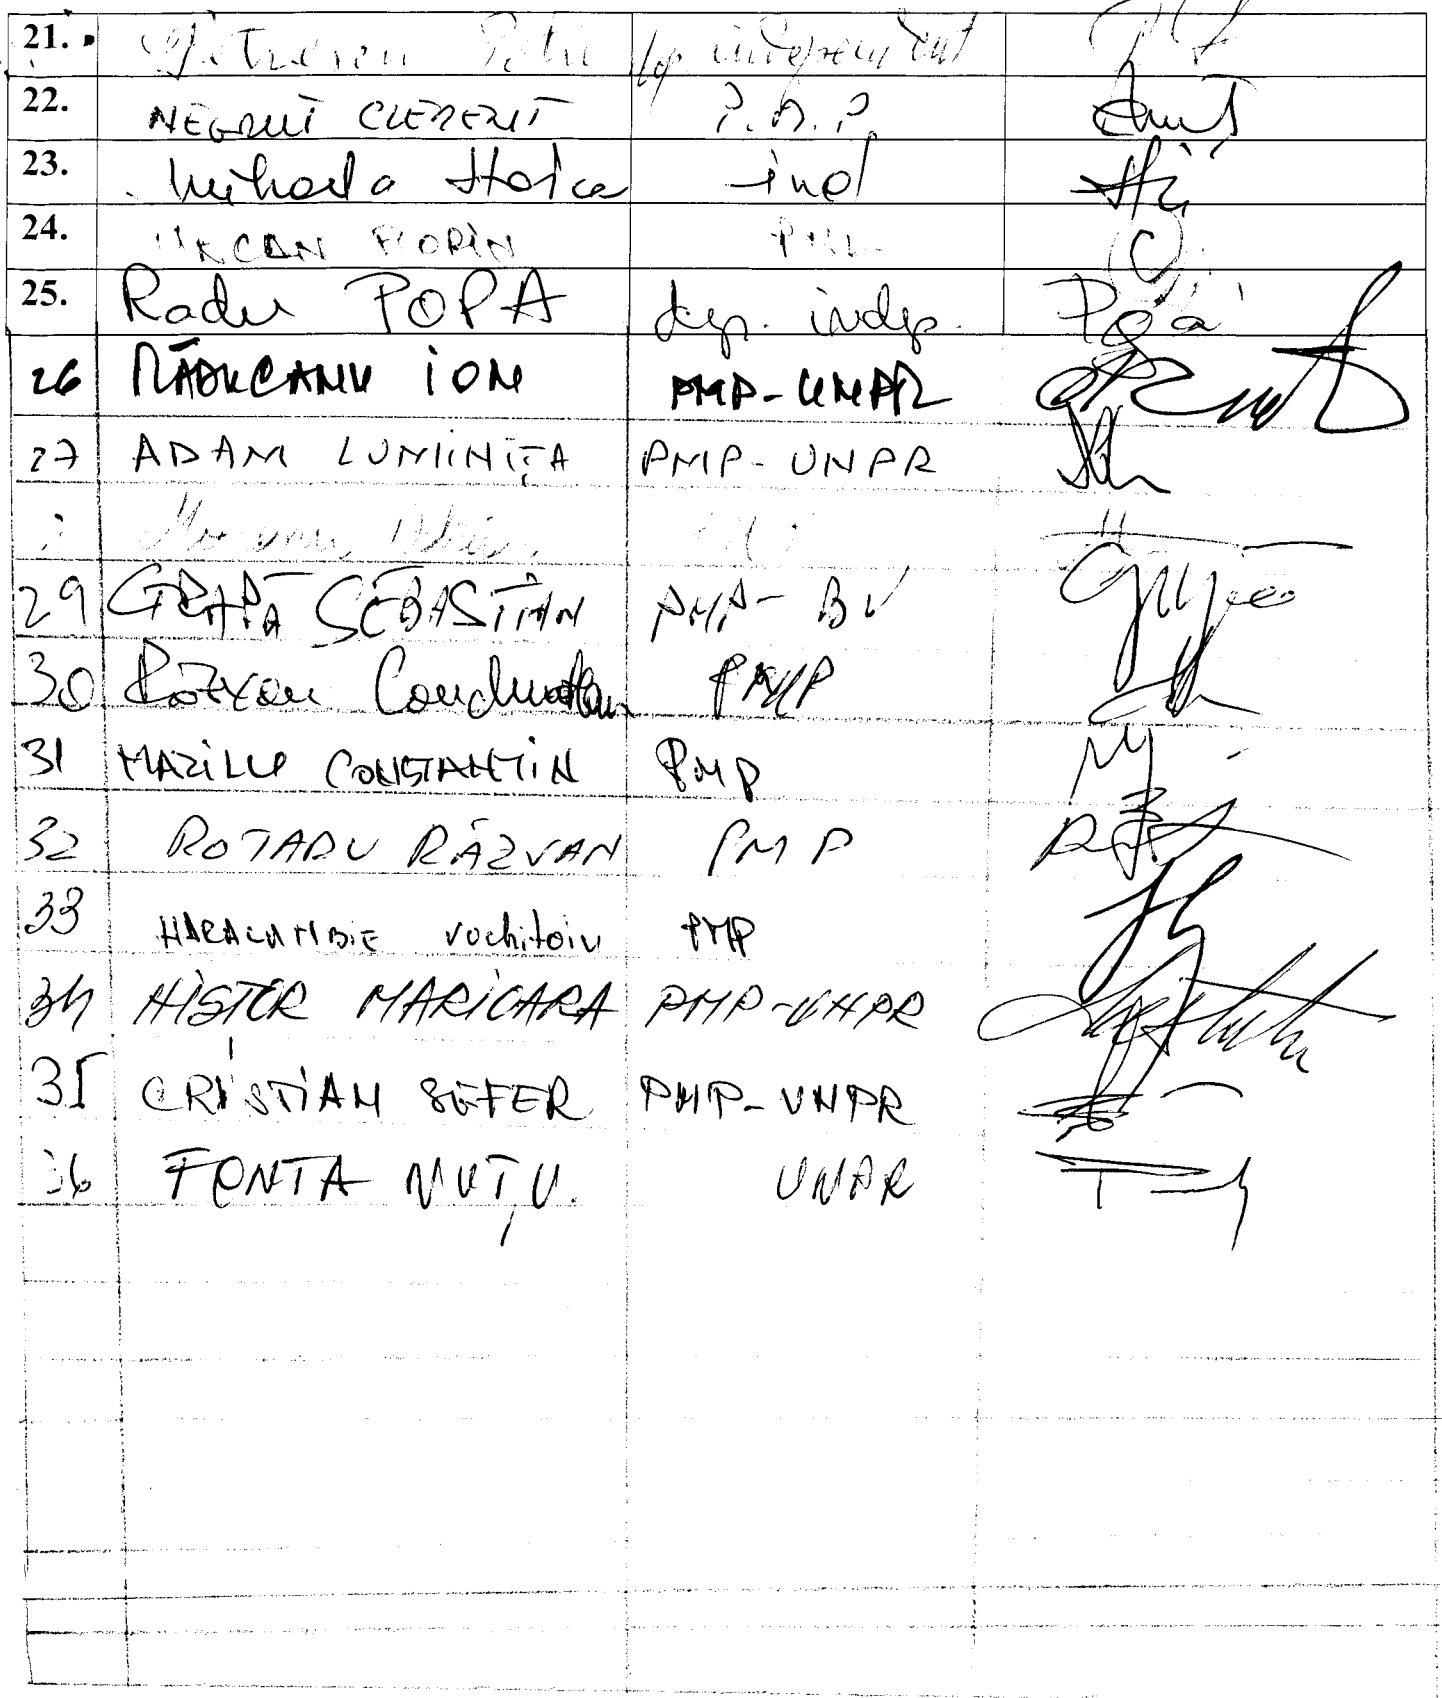 21. Petrescu Petru dep independent
22. NEGRUȚ CLEMENT P.M.P.
23. Mihaela Stoica ind
24. URCAN FLORIN PNL
25. Radu POPA dep. indep. Popa
26 RĂDUCANU ION PMP-UNPR
27 ADAM LUMINIȚA PMP-UNPR
29 GRAPĂ SEBASTIAN PMP-BV
30 Răzvan Condurățeanu PMP
31 MAZILU CONSTANTIN PMP
32 ROTARU RĂZVAN PMP
33 HARALAMBIE Vochițoiu PMP
34 NISTOR MARICARA PMP-UNPR
35 CRISTIAN SEFER PMP-UNPR
36 FONTA NUȚU. UNPR